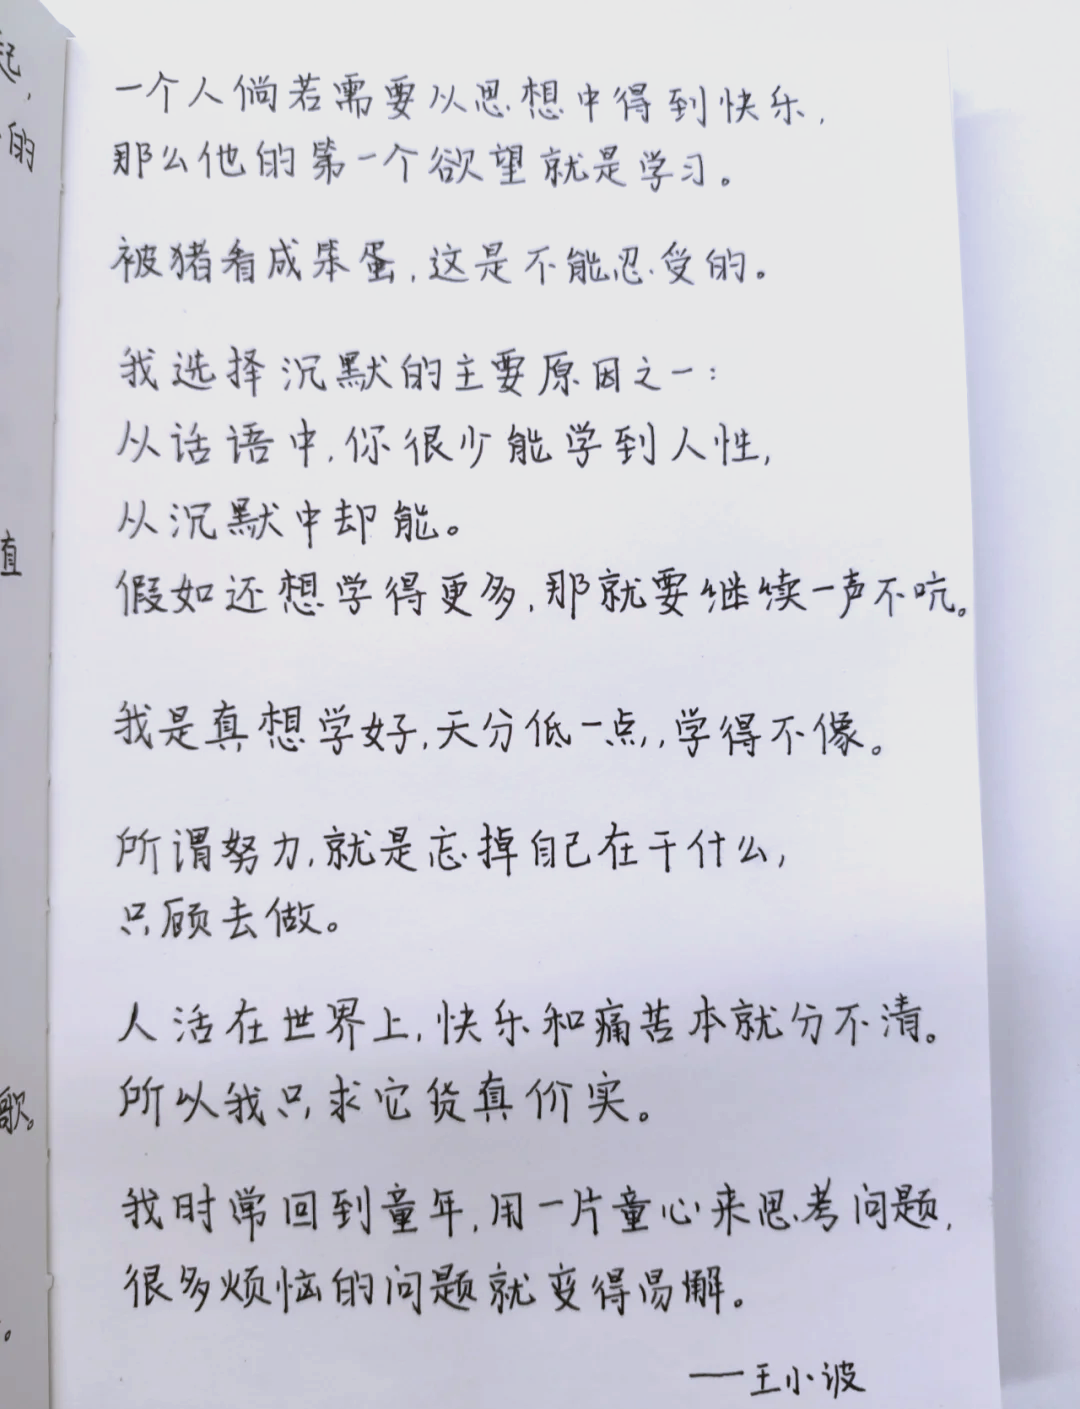 起,
的
直
歌。
。
一个人倘若需要从思想中得到快乐,
那么他的第一个欲望就是学习。
被猪看成笨蛋,这是不能忍受的。
我选择沉默的主要原因之一:
从话语中,你很少能学到人性,
从沉默中却能。
假如还想学得更多,那就要继续一声不吭。
我是真想学好,天分低一点,学得不像。
所谓努力,就是忘掉自己在干什么,
只顾去做。
人活在世界上,快乐和痛苦本就分不清。
所以我只求它货真价实。
我时常回到童年,用一片童心来思考问题,
很多烦恼的问题就变得易解。
——王小波